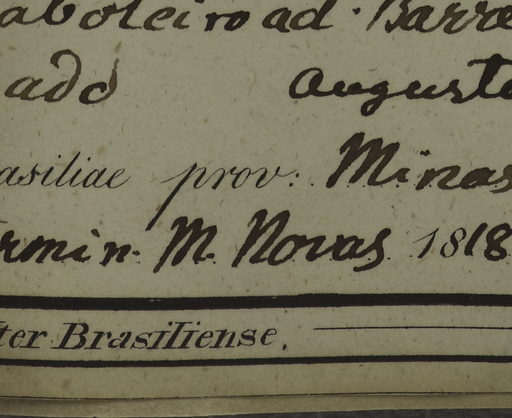 aboleiro ad. Barra
ado Auguste
asiliae prov: Minas
rmin. M. Novas. 1818
ter Brasiliense.